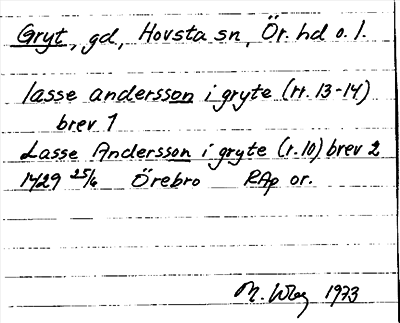 Gryt, gd, Hovsta sn, Ör. hd o. l.
lasse andersson i gryte (rr. 13-14)
brev 1
Lasse Andersson i gryte (r. 10) brev 2
1429 25/6 Örebro RAp or.
1973